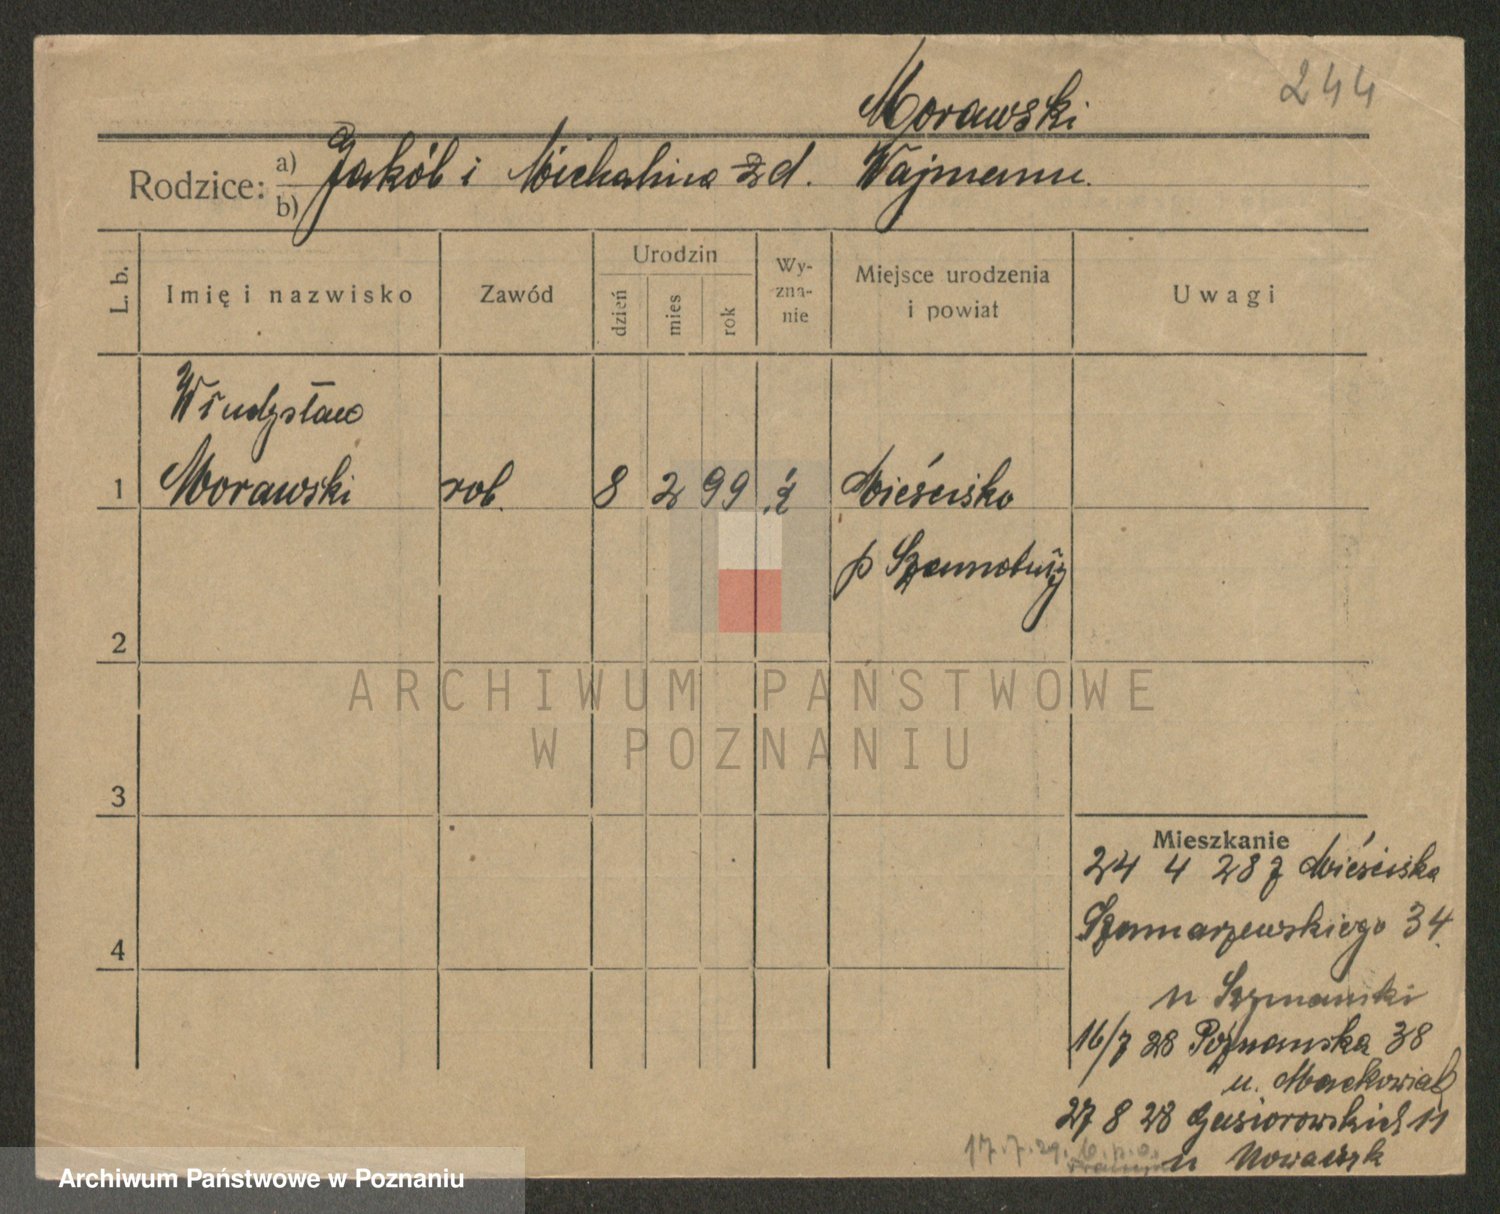 244
Morawski
Rodzice: a) b) Jakób i Michalina zd. Wajmann.
L. b. Imię i nazwisko Zawód Urodzin dzień mies rok Wy-zna-nie Miejsce urodzenia i powiat Uwagi
Władysław
1 Morawski rob. 8 2 99 Mieścisko
p Szamotuły
2
ARCHIWUM PAŃSTWOWE
W POZNANIU
3
Mieszkanie
24 4 28 z Mieściska
4 Szamarzewskiego 34.
u Szymański
16/7 28 Poznańska 38
u. Maćkowiak
27 8 28 Gąsiorowskich 11
17.7.29.
u Nowaczyk
Archiwum Państwowe w Poznaniu